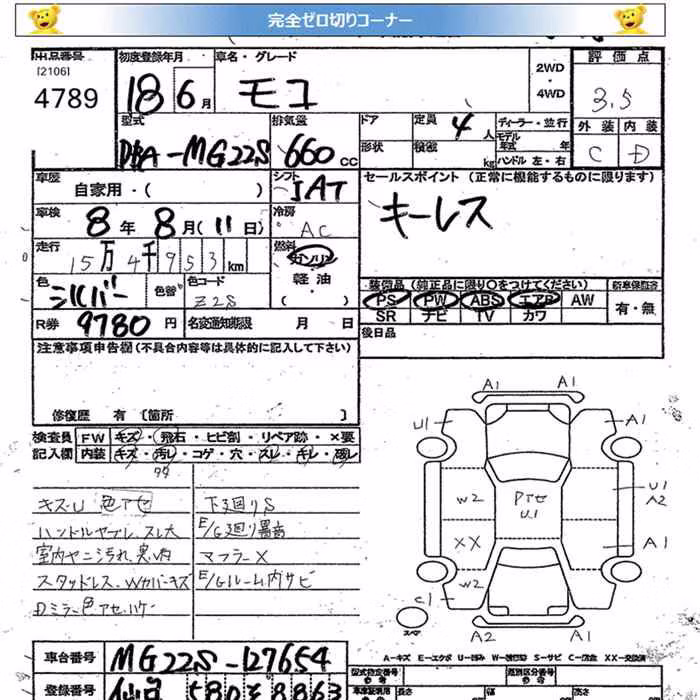 完全ゼロ切りコーナー
出品番号
[2106]
4789
初度登録年月
18 6月
車名・グレード
モコ
2WD
・
4WD
評価点
3.5
外装 内装
C D
型式
DBA-MG22S
排気量
660 cc
ドア
定員
4人
形状
積載
kg
ディーラー・並行
モデル年式 年
ハンドル 左・右
車歴
自家用・( )
シフト
IAT
車検
8年 8月(11日)
冷房
AC
セールスポイント (正常に機能するものに限ります)
キーレス
走行
15万4千953km
燃料
ガソリン
軽油
・
( )
色
シルバー
色替
色コード
Z2S
R券 9780円
名変通知期限 月 日
装備品 (純正品に限り○をつけてください)
PS PW ABS エアB AW
SR ナビ TV カワ
新車保証書
有・無
後日品
注意事項申告欄(不具合内容等は具体的に記入して下さい)
修復歴 有 [箇所 ]
検査員 FW キズ・飛石・ヒビ割・リペア跡・×要
記入欄 内装 キズ・汚レ・コゲ・穴・スレ・キレ・感レ
キズ・U 色アセ
下廻りS
ハンドルヤブレ、スレ大
室内ヤニ汚れ、臭い内
マフラーX
スタッドレス、Wカバーキズ
E/Gルーム内サビ
Dミラー色アセ、ハゲ
A1 A1
U1 A1
W2 Pアセ U1
U1 A2
XX A1
W2
C1
スペア
A2 A1
A-キズ E-エクボ U-凹み S-サビ
車台番号 MG22S-127654
登録番号 仙台 580 そ 8863
型式指定番号
類別区分番号
長さ
幅
高さ